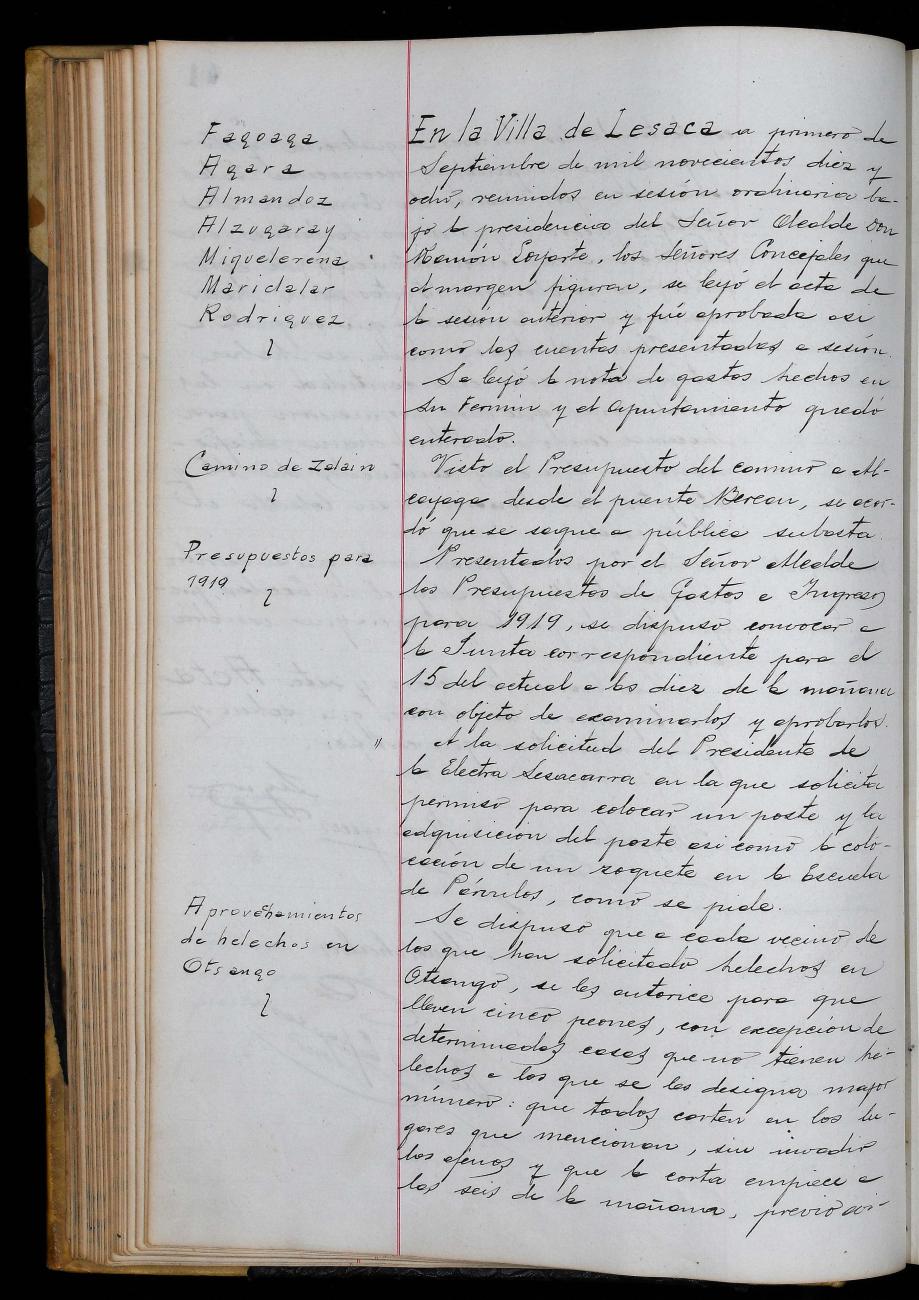 Fagoaga
Agara
Almandoz
Alzugaray
Miquelerena
Maridalar
Rodriguez
En la Villa de Lesaca a primero de
Septiembre de mil novecientos diez y
ocho, reunidos en sesión ordinaria ba-
jo la presidencia del Señor Alcalde Don
Ramón Loyarte, los Señores Concejales que
al margen figuran, se leyó el acta de
la sesión anterior y fué aprobada asi
como las cuentas presentadas a sesión.
Se leyó la nota de gastos hechos en
Sn Fermin y el Ayuntamiento quedó
enterado.
Camino de Zalain
Visto el Presupuesto del camino a Al-
cayaga desde el puente Berean, se acor-
dó que se saque a pública subasta.
Presupuestos para
1919
Presentados por el Señor Alcalde
los Presupuestos de Gastos e Ingresos
para 1919, se dispuso convocar a
la Junta correspondiente para el
15 del actual a las diez de la mañana
con objeto de examinarlos y aprobarlos.
" A la solicitud del Presidente de
la Electra Lesacarra en la que solicita
permiso para colocar un poste y la
adquisicion del poste asi como la colo-
cación de un zoquete en la Escuela
de Párvulos, como se pide.
Aprovechamientos
de helechos en
Otsango
Se dispuso que a cada vecino de
los que han solicitado helechos en
Otsango, se les autorice para que
lleven cinco peones, con excepción de
determinadas casas que no tienen he-
lechos a los que se les designa mayor
número: que todos corten en los lu-
gares que mencionan, sin invadir
los ajenos y que la corta empiece a
las seis de la mañana, previo avi-